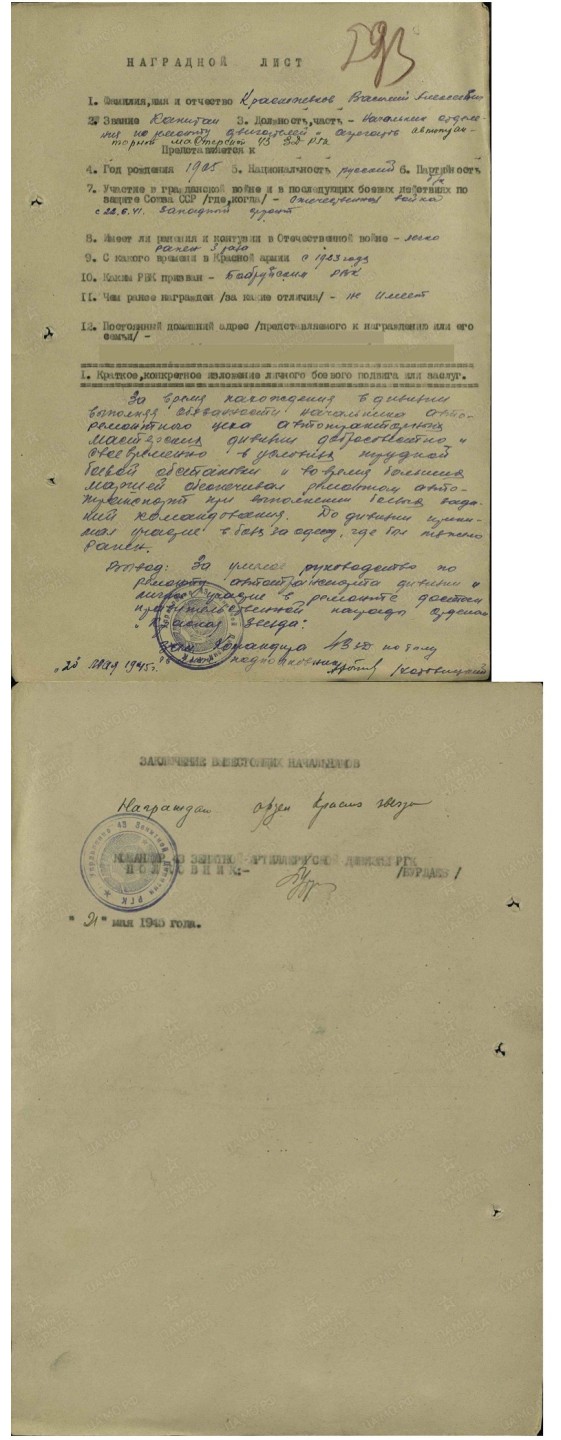 НАГРАДНОЙ ЛИСТ
1. Фамилия, имя и отчество Василий Алексеевич
2. Звание Капитан 3. Должность, часть - Начальник отделе-
ния по ремонту двигателей и агрегатов автотрак-
торной мастерской 43
Представляется к
4. Год рождения 1905 5. Национальность русский 6. Партийность
7. Участие в гражданской войне и в последующих боевых действиях по
защите Союза ССР /где, когда/ - Отечественная война
с 22.6.41. Западный фронт
8. Имеет ли ранения и контузии в Отечественной войне - легко
ранен 3 раза
9. С какого времени в Красной армии с 1923 года
10. Каким РВК призван - Бобруйским РВК
11. Чем ранее награжден /за какие отличия/ - Не имеет
12. Постоянный домашний адрес /представляемого к награждению или его
семьи/ -
1. Краткое, конкретное изложение личного боевого подвига или заслуг.
За время нахождения в дивизии
выполняя обязанности начальника авто-
ремонтного цеха автотракторной
мастерской дивизии добросовестно и
своевременно в условиях трудной
боевой обстановки и во время больших
маршей обеспечивал ремонтом авто-
транспорт при выполнении боевых зада-
ний командования. До дивизии прини-
мал участие в боях за Одессу, где был тяжело
ранен.
Вывод: За умелое руководство по
ремонту автотранспорта дивизии и
личное участие в ремонте достоин
правительственной награды орденом
"Красная звезда".
Командира 43 по тылу
подполковник
"20" мая 1945 г.
ЗАКЛЮЧЕНИЕ ВЫШЕСТОЯЩИХ НАЧАЛЬНИКОВ
Награжден орден Красная звезда
Управление 43 Зенитной Дивизии РГК
КОМАНДИР 43 ЗЕНИТНОЙ АРТИЛЛЕРИЙСКОЙ ДИВИЗИИ РГК
ПОЛКОВНИК:- /БУРДАЕВ/
"21" мая 1945 года.